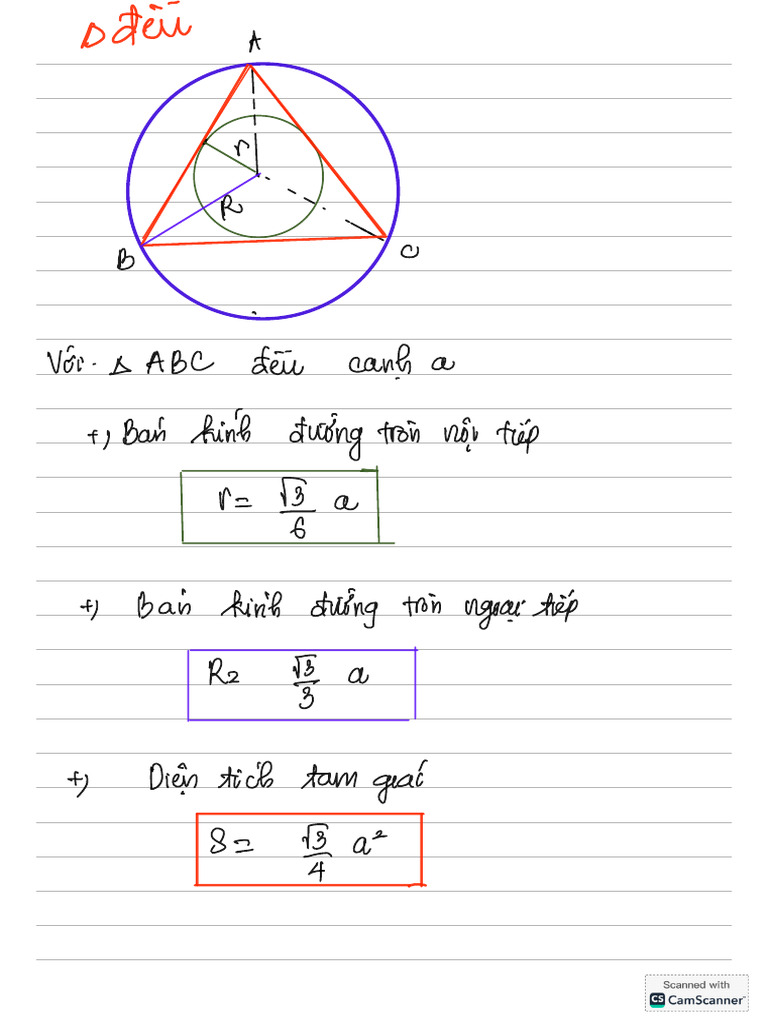 Δ đều
A
r
R
B
C
Với Δ ABC đều cạnh a
+) Bán kính đường tròn nội tiếp
r = √3/6 a
+) Bán kính đường tròn ngoại tiếp
R = √3/3 a
+) Diện tích tam giác
S = √3/4 a²
Scanned with
CS CamScanner